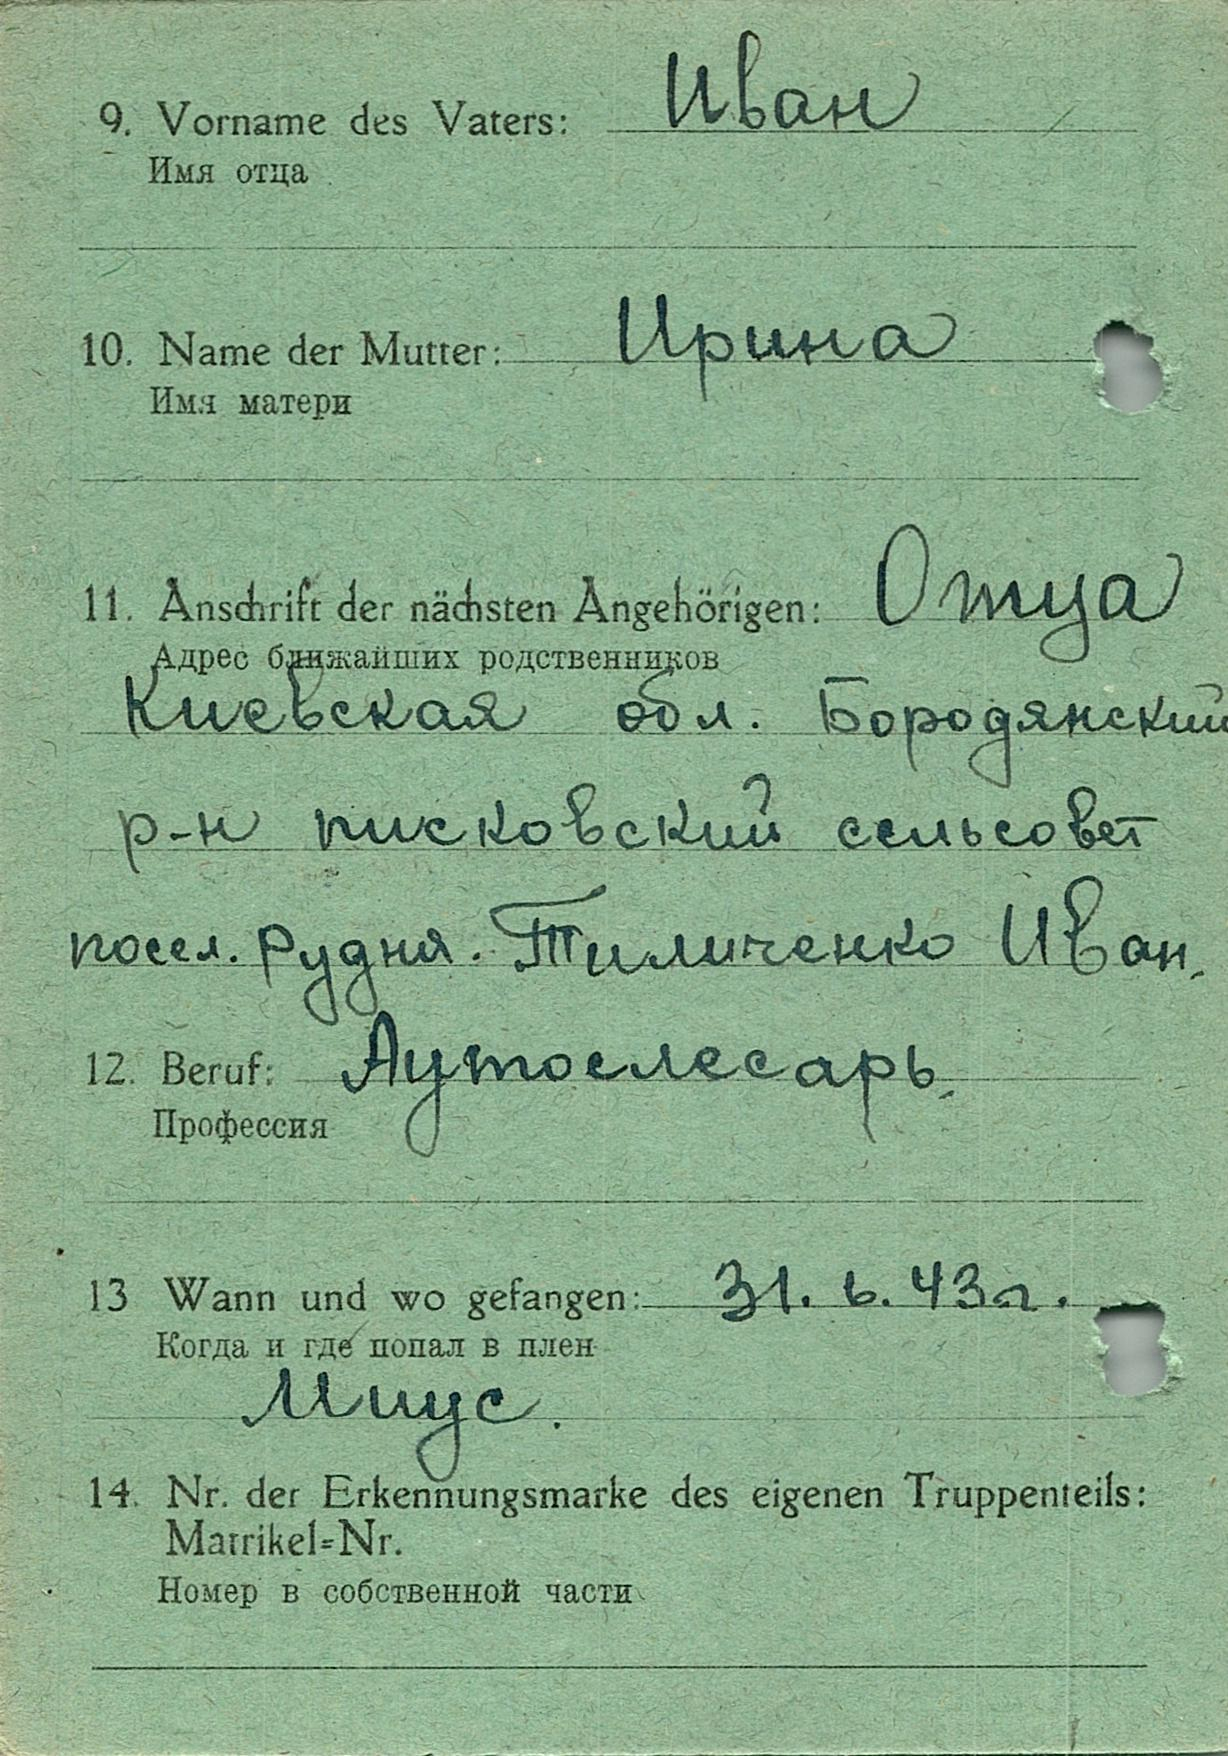 9. Vorname des Vaters: Иван
Имя отца
10. Name der Mutter: Ирина
Имя матери
11. Anschrift der nächsten Angehörigen: Отца
Адрес ближайших родственников
Киевская обл. Бородянский
р-н писковский сельсовет
посел. Рудня. Тиличенко Иван.
12. Beruf: Аутослесарь.
Профессия
13 Wann und wo gefangen: 31. 6. 43 г.
Когда и где попал в плен
Миус.
14. Nr. der Erkennungsmarke des eigenen Truppenteils:
Matrikel=Nr.
Номер в собственной части